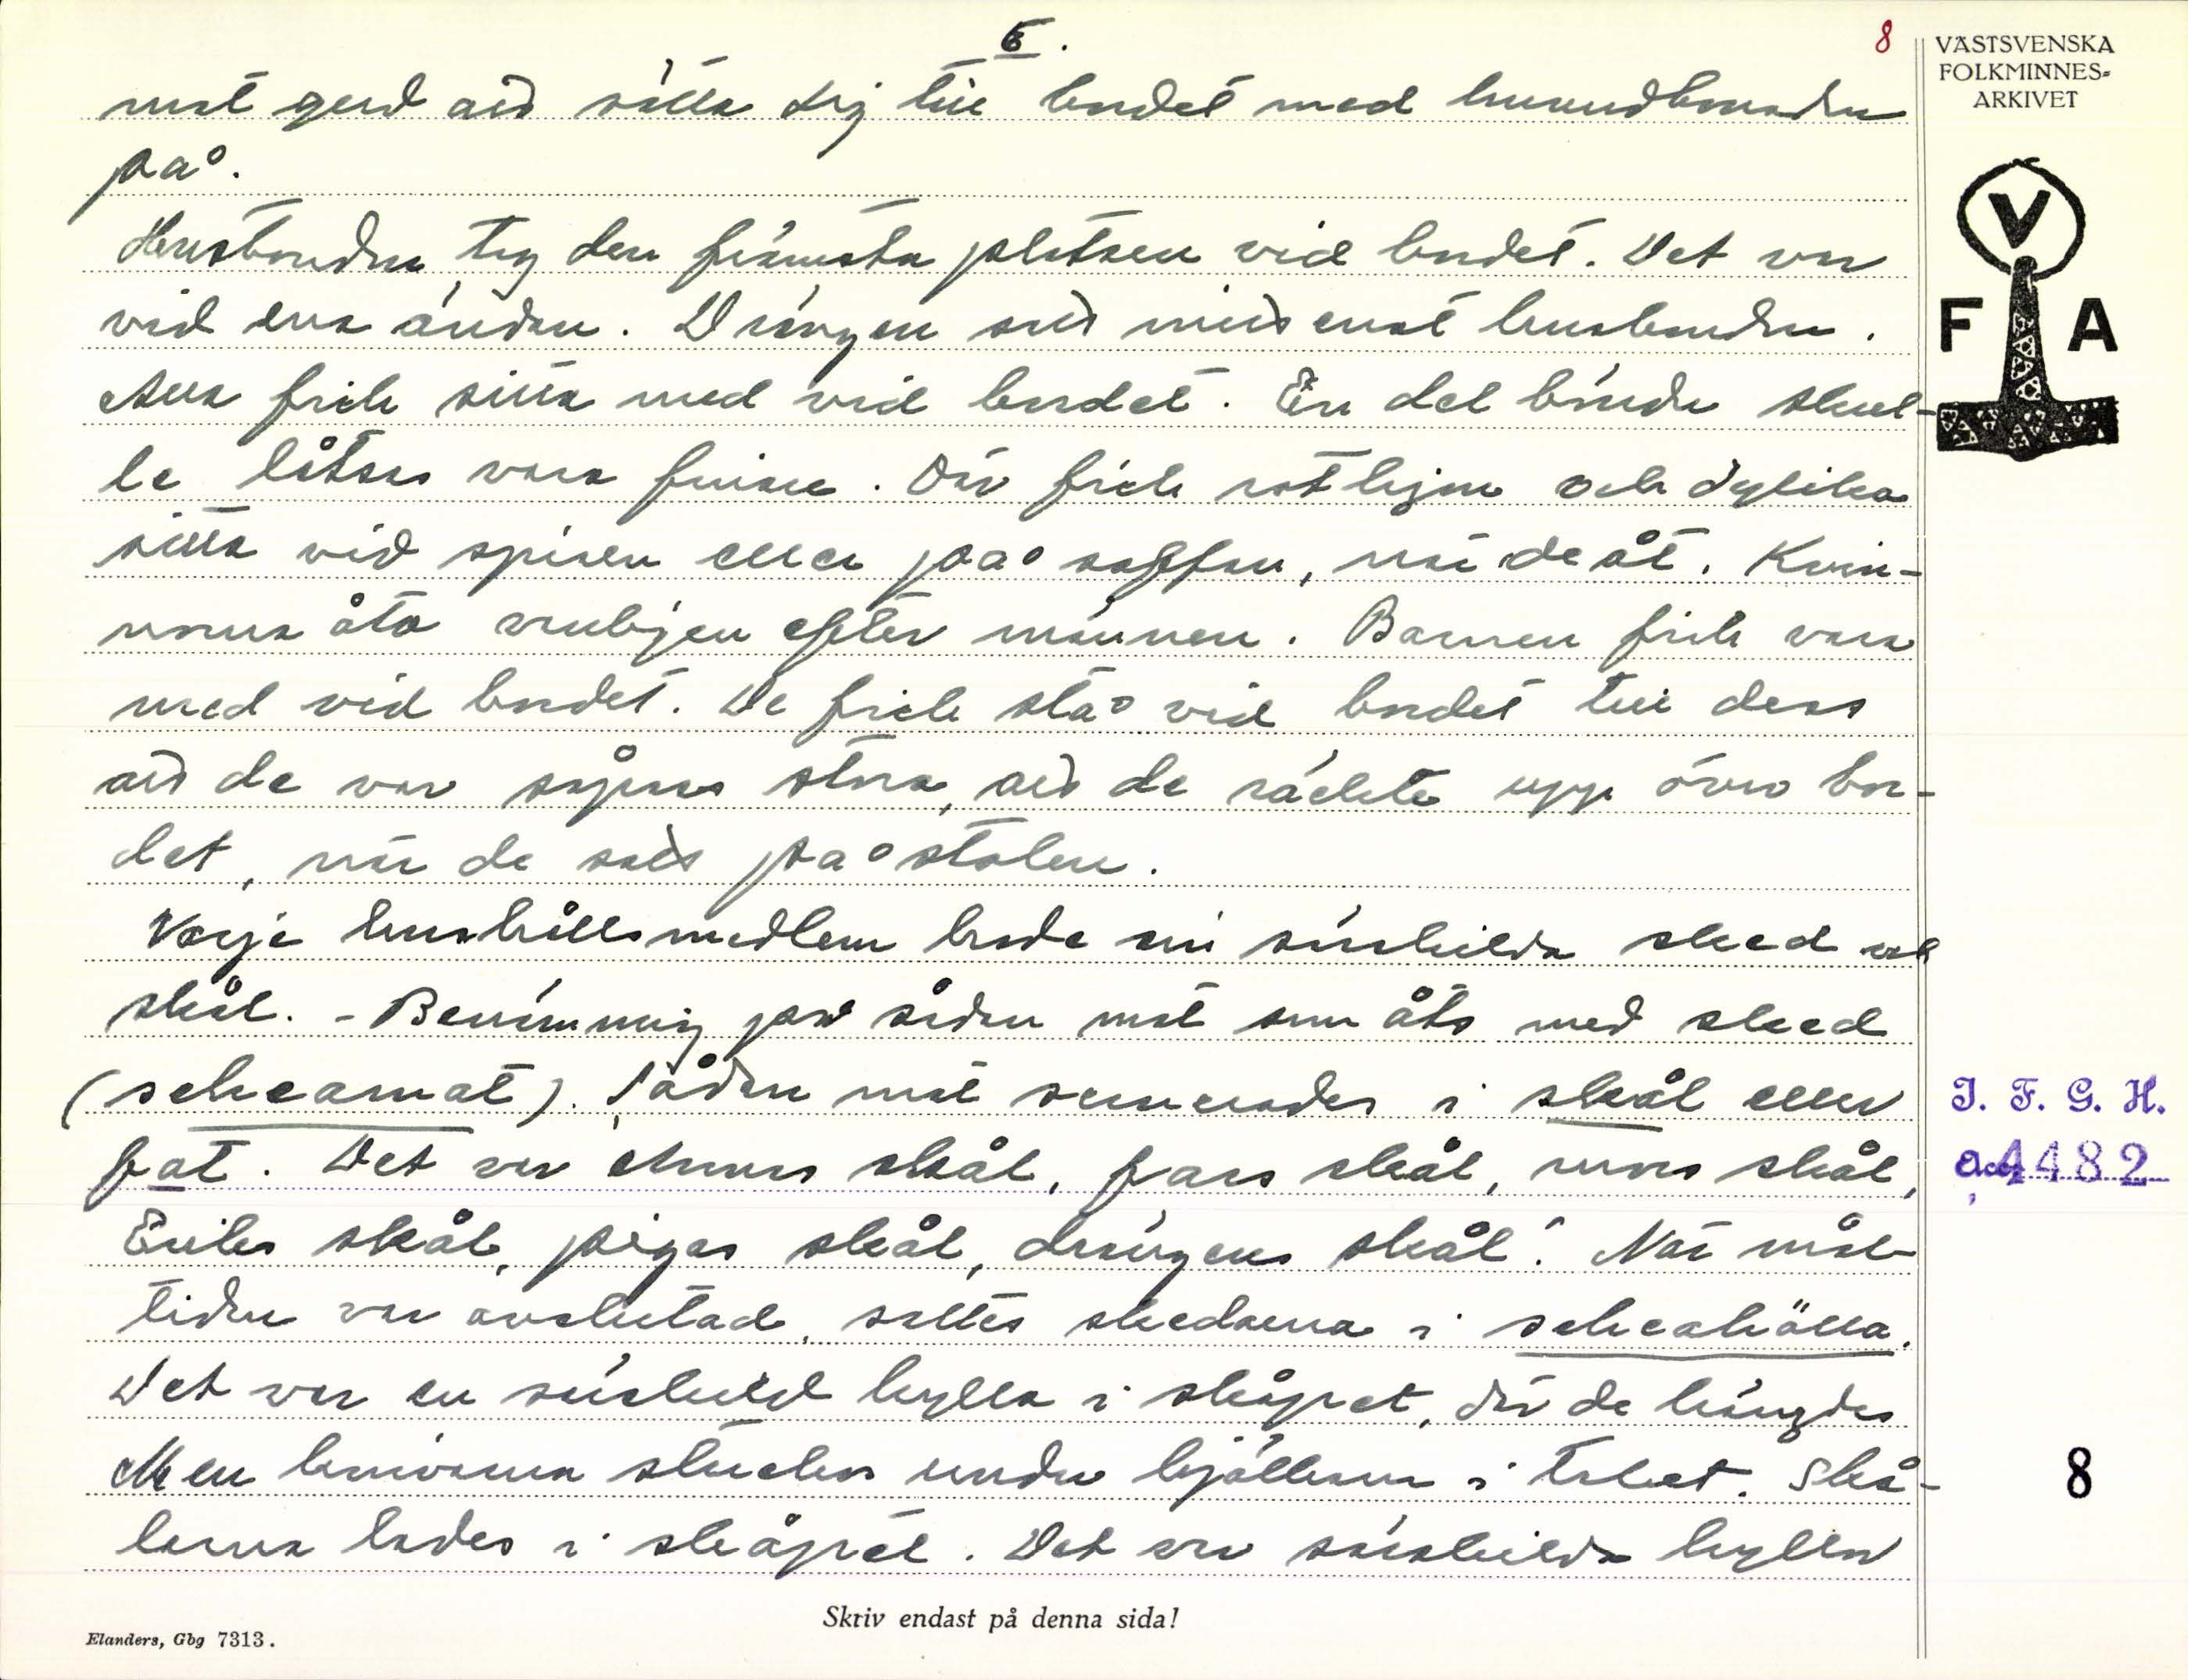 6.
8
mot gud att sätta sig till bordet med huvudbonaden
på.
Husbonden tog den främsta platsen vid bordet. Det var
vid ena ändan. Drängen satt närmast husbonden.
Alla fick sitta med vid bordet. En del bönder skul-
le låtsas vara finare. Där fick rothjon och dylika
sitta vid spisen eller på soffan, när de åt. Kvin-
norna åto vanligen efter männen. Barnen fick vara
med vid bordet. De fick stå vid bordet till dess
att de var såpass stora, att de räckte upp över bor-
det, när de satt på stolen.
Varje hushållsmedlem hade sin särskilda sked och
skål. - Benämning på sådan mat som åts med sked
(skeamat). Sådan mat serverades i skål eller
fat. Det var "Annas skål, fars skål, mors skål,
Eriks skål, pigas skål, drängens skål". När mål-
tiden var avslutad, sattes skedarna i skeahölla.
Det var en särskild hylla i skåpet, där de hängdes
Men knivarna stacks under bjälken i taket. Skå-
larna lades i skåpet. Det var särskilda hyllor
Skriv endast på denna sida!
Elanders, Gbg 7313.
VÄSTSVENSKA
FOLKMINNES-
ARKIVET
V
F A
I. F. G. H.
acc 4482
8